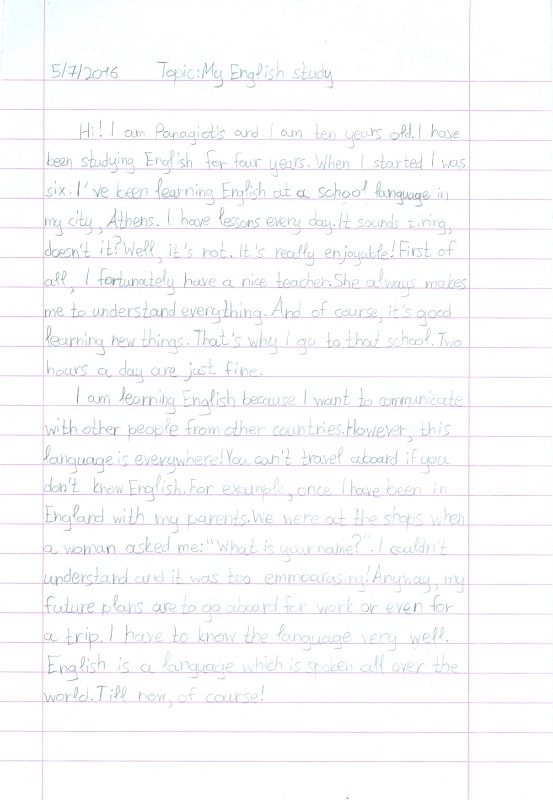 5/7/2016 Topic:My English study
Hi! I am Panagiot's and I am ten years old.I have
been studying English for four years. When I started I was
six. I've been learning English at a school language in
my city, Athens. I have lessons every day.It sounds tiring,
doesn't it?Well, it's not. It's really enjoyable!First of
all, I fortunately have a nice teacher.She always makes
me to understand everything. And of course, it's good
learning new things. That's why I go to that school.Two
hours a day are just fine.
I am learning English because I want to communicate
with other people from other countries.However, this
language is everywhere!You can't travel aboard if you
don't know English.For example, once I have been in
England with my parents.We were at the shops when
a woman asked me:"What is your name?". I couldn't
understand and it was too emmbarasing!Anyway, my
future plans are to go aboard for work or even for
a trip. I have to know the language very well.
English is a language which is spoken all over the
world.Till now, of course!